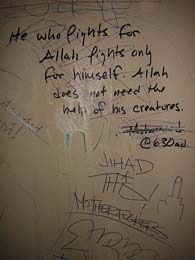 He who fights for
Allah fights only
for himself. Allah
does not need the
help of his creatures.
@630ad.
JIHAD
THIS
MOTHERFUCKERS